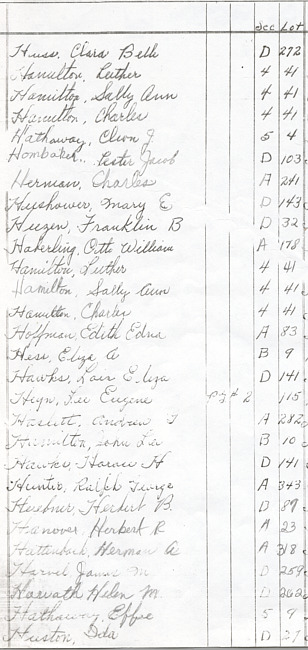 Sec Lot
Huss, Clara Belle D 272
Hamilton, Luther 4 41
Hamilton, Sally Ann 4 41
Hamilton, Charles 4 41
Hathaway, Cleon J 5 4
Hombaker, Lester Jacob D 103
Herman, Charles A 241
Hushower, Mary E D 143
Huzen, Franklin B D 32
Haberling, Otto William A 178
Hamilton, Luther 4 41
Hamilton, Sally Ann 4 41
Hamilton, Charles 4 41
Hoffman, Edith Edna A 83
Hess, Eliza A B 9
Hawks, Lois Eliza D 141
Heyn, Eugene 2 115
Haslett, Andrew A 282
Hamilton, John B 10
Hawks, Horace H D 141
Hunter, Ralph George A 343
Heebner, Herbert B. D 89
Hanover, Herbert R A 23
Hattenbach, Herman A 318
James M D 259
Horvath Helen M. D 262
Hathaway, Effie 5 9
Huston, Ida D 27